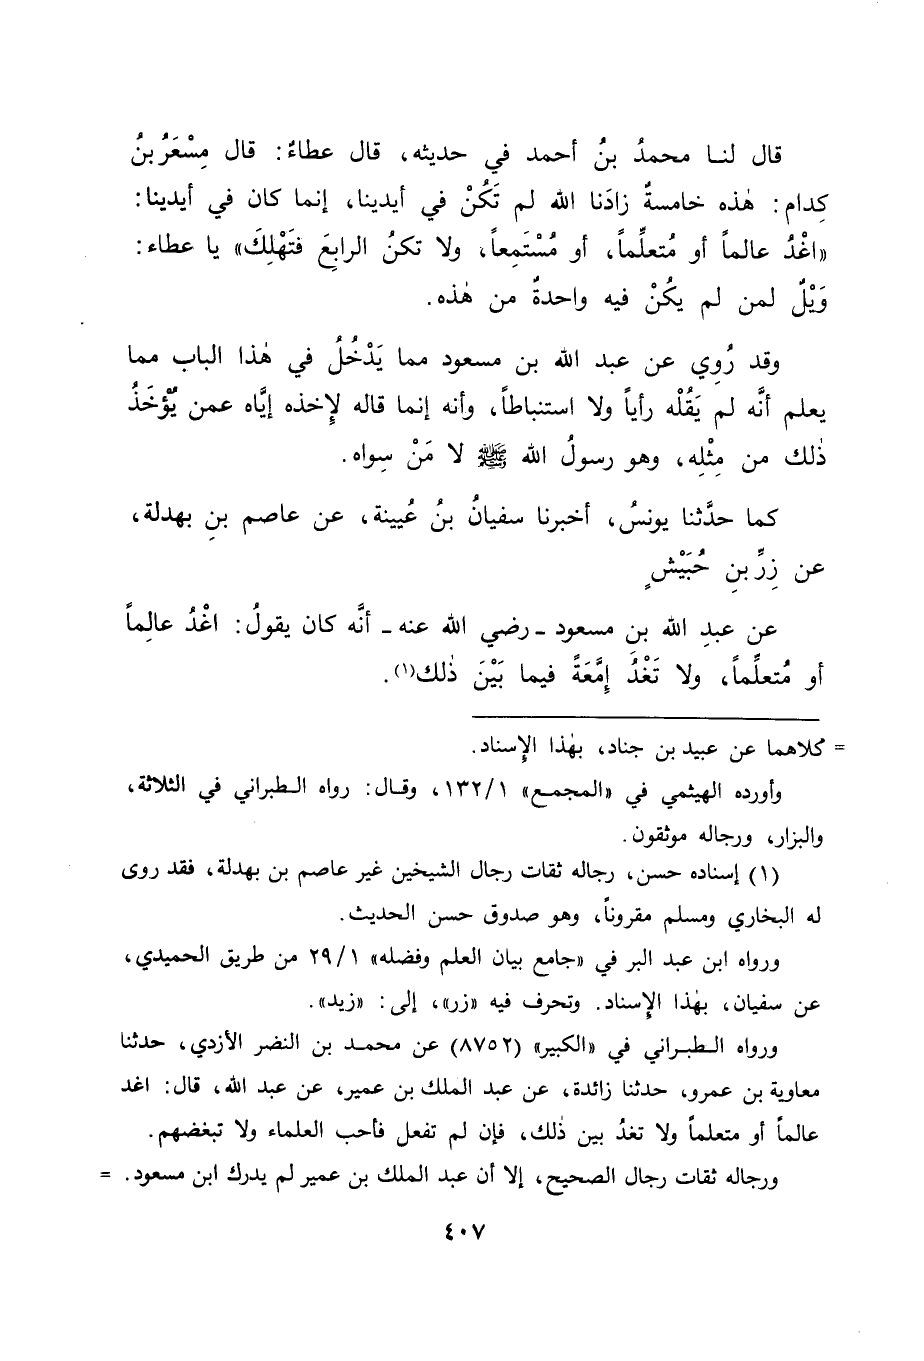 قال لنـا محمدُ بنُ أحمد في حديثه، قال عطاءٌ: قال مِسْعَرُ بنُ
كِدام: هٰذه خامسةٌ زادَنا الله لم تَكُنْ في أيدينا، إنما كان في أيدينا:
«اغْدُ عالماً أو مُتعلِّماً، أو مُسْتَمِعاً، ولا تكنُ الرابعَ فتَهْلِكَ» يا عطاء:
وَيْلٌ لمن لم يكُنْ فيه واحدةٌ من هٰذه.
وقد رُوِي عن عبد الله بن مسعود مما يَدْخُلُ في هٰذا الباب مما
يعلم أنَّه لم يَقُلْه رأياً ولا استنباطاً، وأنه إنما قاله لإِخذه إيَّاه عمن يُؤْخَذُ
ذٰلك من مِثْلِه، وهو رسولُ الله ﷺ لا مَنْ سِواه.
كما حدَّثنا يونسُ، أخبرنا سفيانُ بنُ عُيينة، عن عاصم بنِ بهدلة،
عن زِرِّ بنِ حُبَيْشٍ
عن عبدِ الله بن مسعود ـ رضي الله عنه ـ أنَّه كان يقولُ: اغْدُ عالِماً
أو مُتعلِّماً، ولا تَغْدُ إمَّعَةً فيما بَيْنَ ذٰلك(١).
= كلاهما عن عبيد بن جناد، بهٰذا الإِسناد.
وأورده الهيثمي في «المجمع» ١٣٢/١، وقـال: رواه الـطبراني في الثلاثة،
والبزار، ورجاله موثقون.
(١) إسناده حسن، رجاله ثقات رجال الشيخين غير عاصم بن بهدلة، فقد روى
له البخاري ومسلم مقروناً، وهو صدوق حسن الحديث.
ورواه ابن عبد البر في «جامع بيان العلم وفضله» ٢٩/١ من طريق الحميدي،
عن سفيان، بهٰذا الإِسناد. وتحرف فيه «زر»، إلى: «زيد».
ورواه الـطبـراني في «الكبير» (٨٧٥٢) عن محمـد بن النضر الأزدي، حدثنا
معاوية بن عمرو، حدثنا زائدة، عن عبد الملك بن عمير، عن عبد الله، قال: اغد
عالماً أو متعلماً ولا تغدُ بين ذٰلك، فإن لم تفعل فأحب العلماء ولا تبغضهم.
ورجاله ثقات رجال الصحيح، إلا أن عبد الملك بن عمير لم يدرك ابن مسعود. =
٤٠٧